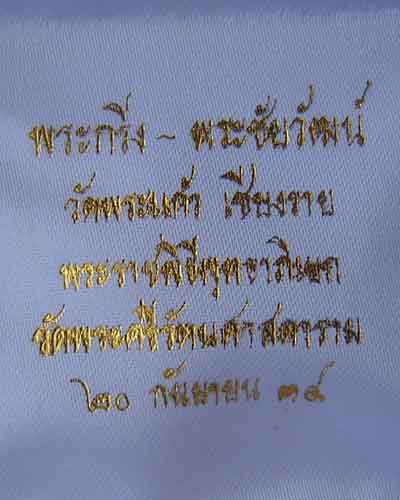 พระกริ่ง ~ พระชัยวัฒน์
วัดพระแก้ว เชียงราย
พระราชพิธีพุทธาภิเษก
วัดพระศรีรัตนศาสดาราม
๒๐ กันยายน ๓๔